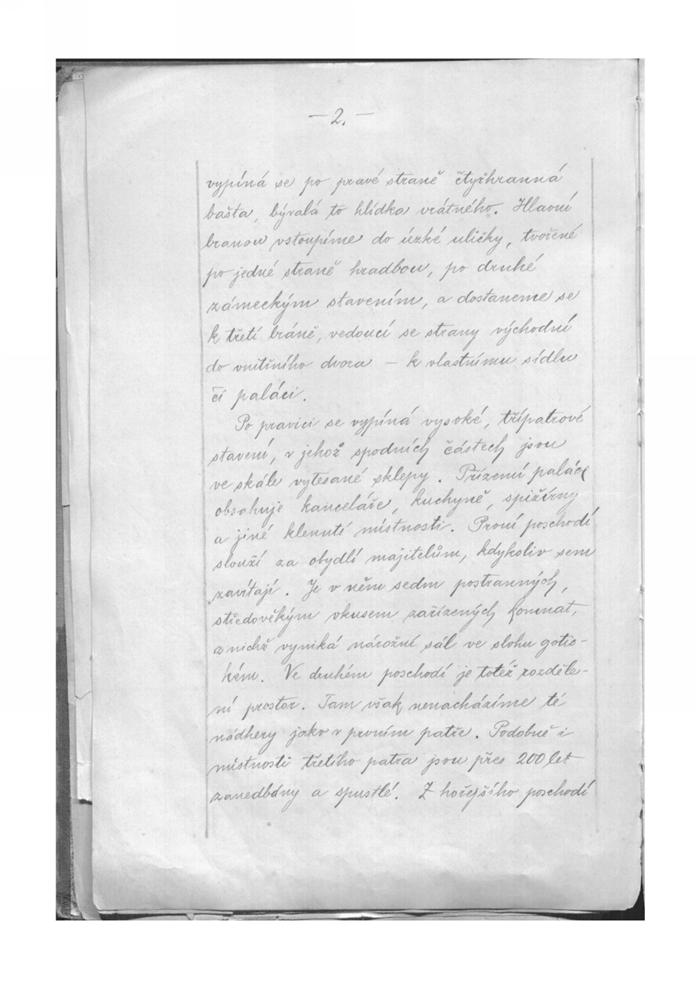 — 2. —
vypíná se po pravé straně čtyřhranná
bašta, bývalá to hlídka vrátného. Hlavní
branou vstoupíme do úzké uličky, tvořené
po jedné straně hradbou, po druhé
zámeckým stavením, a dostaneme se
k třetí bráně, vedoucí se strany východní
do vnitřního dvora — k vlastnímu sídlu
či paláci.
Po pravici se vypíná vysoké, třípatrové
stavení, v jehož spodních částech jsou
ve skále vytesané sklepy. Přízemí paláce
obsahuje kanceláře, kuchyně, spižírny
a jiné klenuté místnosti. První poschodí
slouží za obydlí majitelům, kdykoliv sem
zavítají. Je v něm sedm postranných,
středověkým vkusem zařízených komnat,
z nichž vyniká nárožní sál ve slohu gotic-
kém. Ve druhém poschodí je totéž rozděle-
ní prostor. Tam však nenacházíme té
nádhery jako v prvním patře. Podobně i
místnosti třetího patra jsou přes 200 let
zanedbány a spustlé. Z hořejšího poschodí